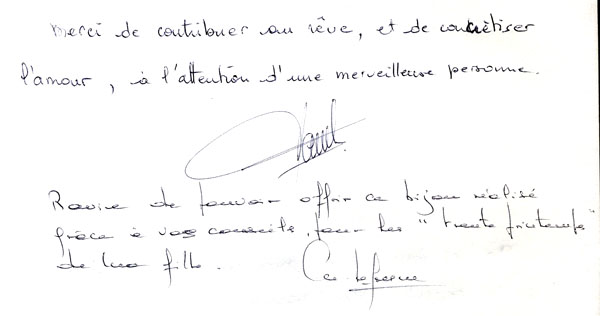 Merci de contribuer au rêve, et de concrétiser
l'amour, à l'attention d'une merveilleuse personne.
Ravie de pouvoir offrir ce bijou réalisé
grâce à vos conseils, pour les "trente printemps"
de ma fille.